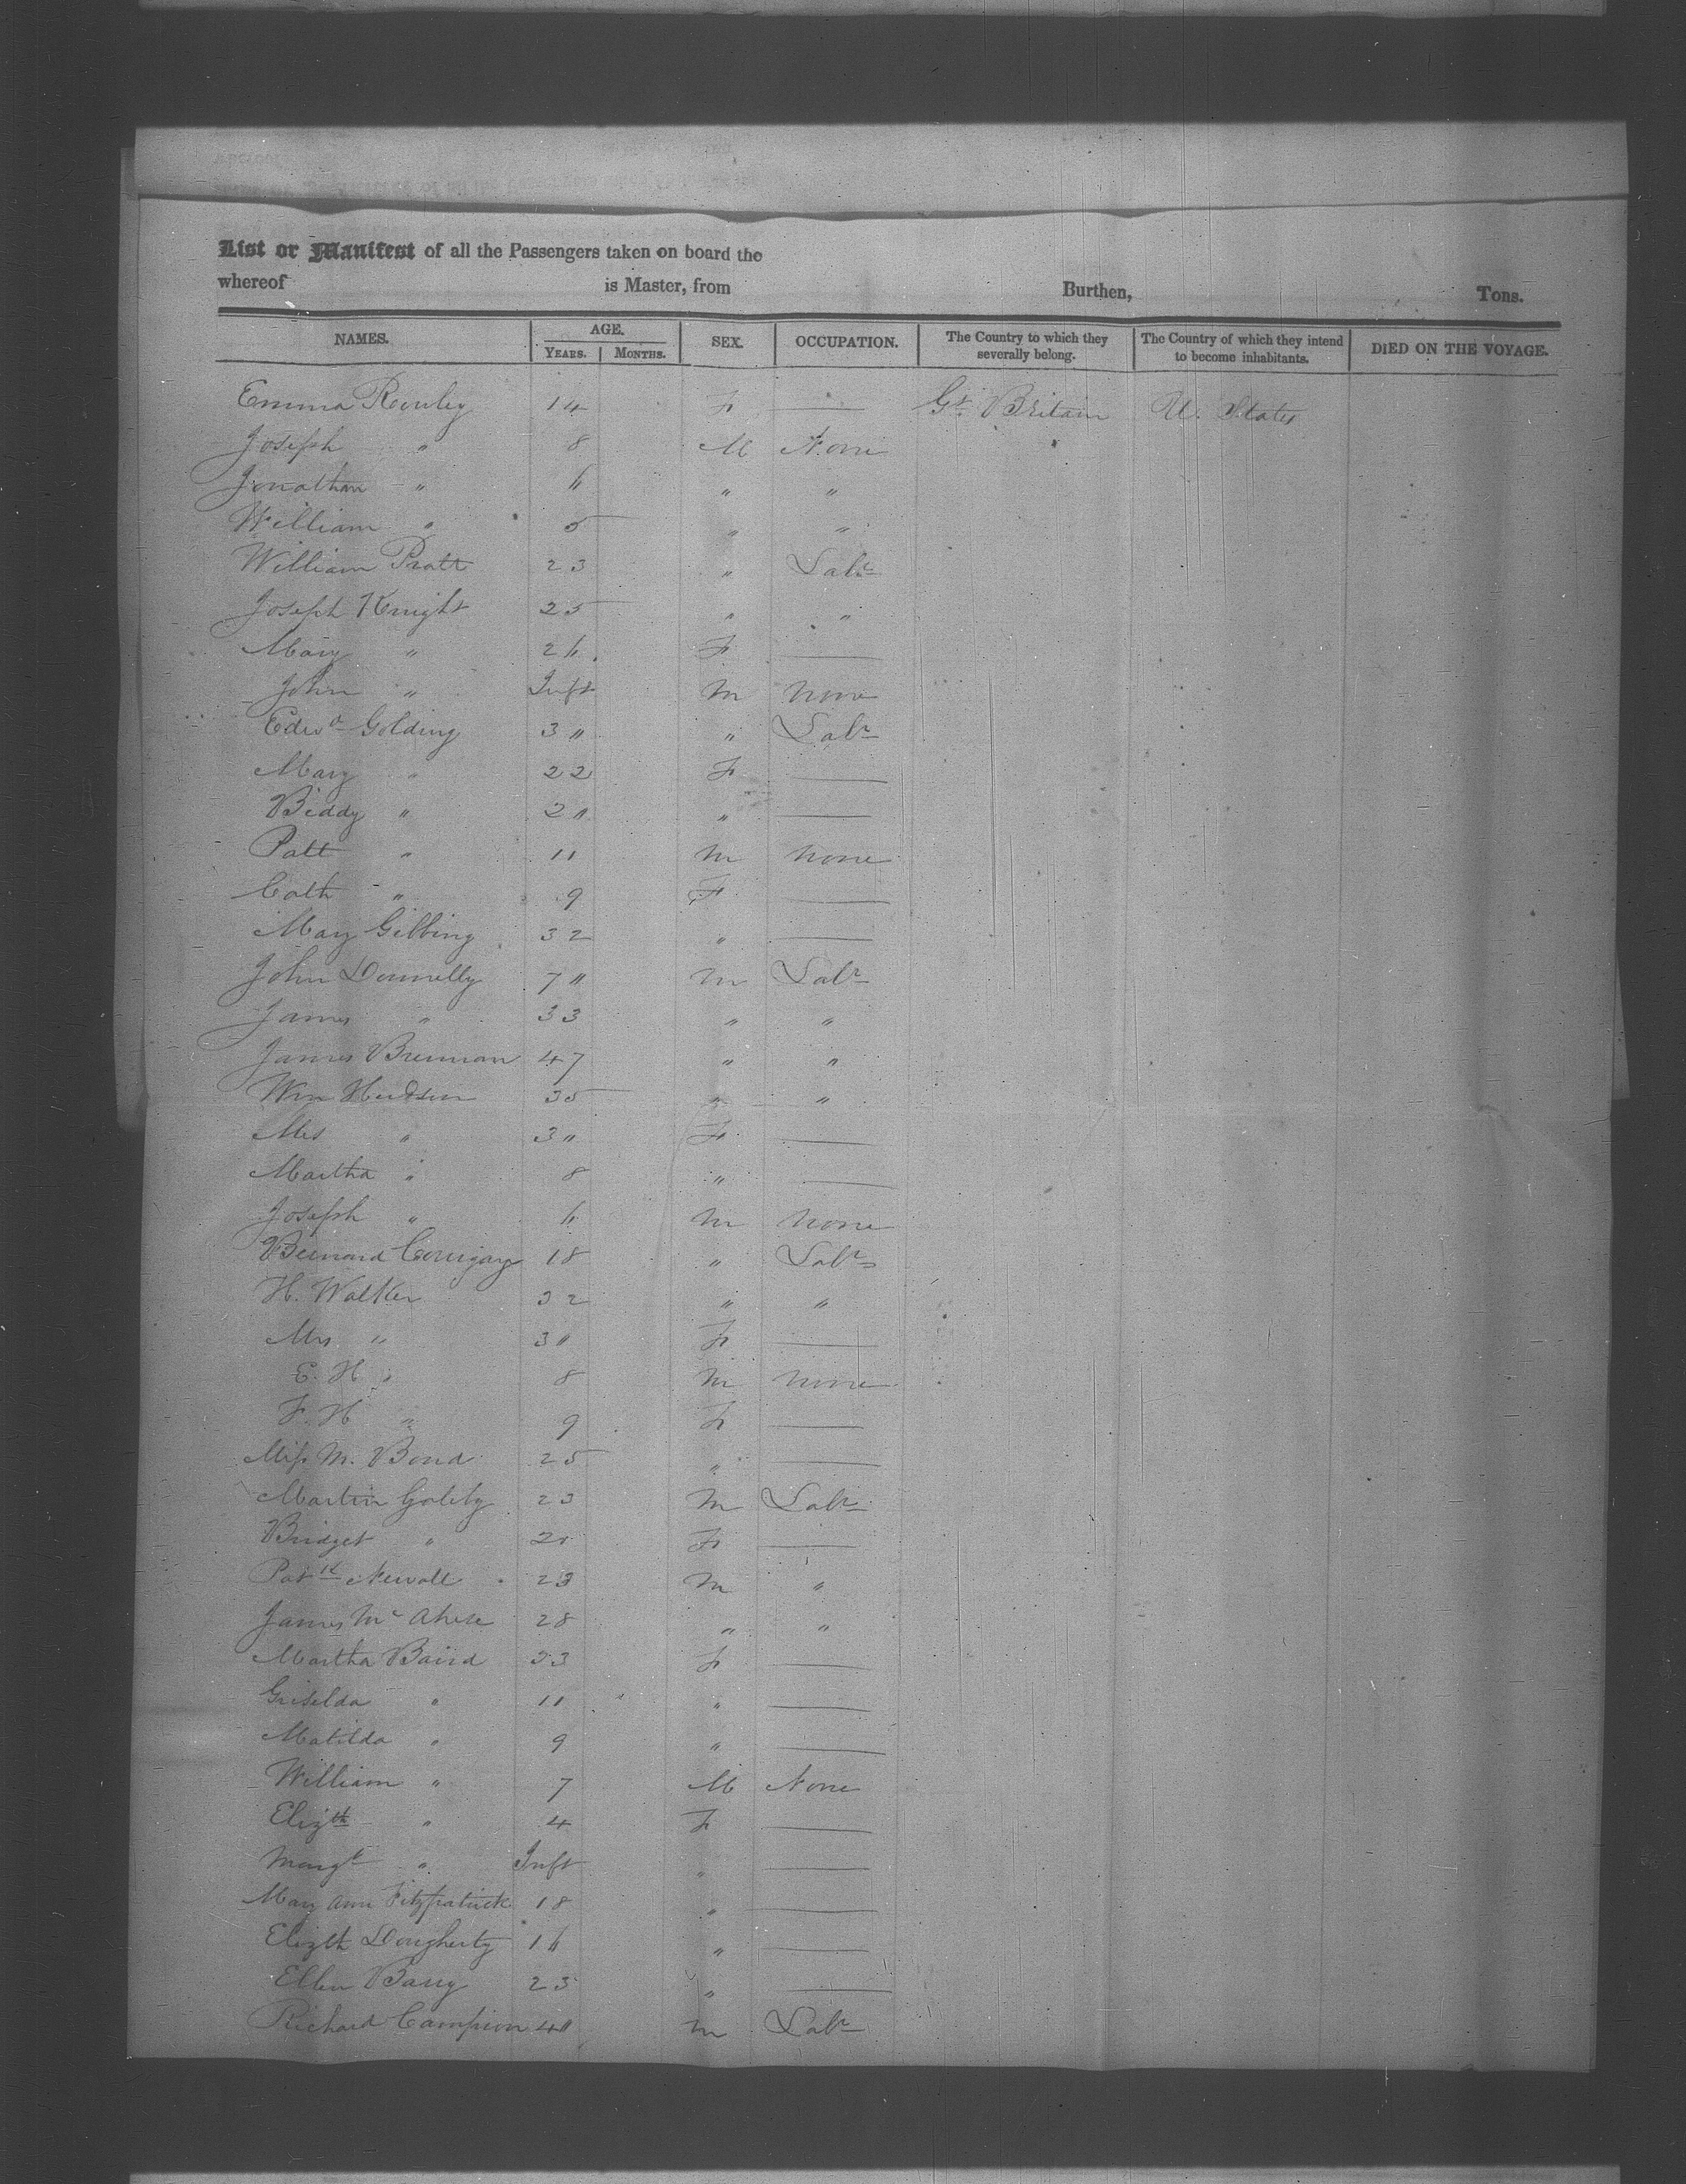 List or Manifest of all the Passengers taken on board the
whereof is Master, from Burthen, Tons.
NAMES. AGE. YEARS. MONTHS. SEX. OCCUPATION. The Country to which they severally belong. The Country of which they intend to become inhabitants. DIED ON THE VOYAGE.
Emma Rowley 14 F — Gt. Britain U. States
Joseph " 8 M None
Jonathan " 6 " "
William " 5 " "
William Pratt 23 " Labr
Joseph Knight 25 " "
Mary " 26 F —
John " Inft M None
Edwd Golding 30 " Labr
Mary " 22 F —
Biddy " 20 " —
Patt " 11 M None
Cath " 9 F —
Mary Gibbing 32 " —
John Donnelly 70 M Labr
James " 33 " "
James Brennan 47 " "
Wm Hudson 35 " "
Mrs " 30 F —
Martha " 8 " —
Joseph " 6 M None
Bernard Corrigan 18 " Labr
H. Walker 32 " "
Mrs " 30 F —
E. H " 8 M None
F. H " 9 F —
Miss M. Bond 25 " —
Martin 23 M Labr
Bridget " F —
Patk Newall 23 M "
James Mc 28 " "
Martha Baird 33 F —
Griselda " 11 " —
Matilda " 9 " —
William " 7 M None
Elizth " 4 F —
Margt " Inft " —
Mary Ann Fitzpatrick 18 " —
Elizth Dougherty 16 " —
Ellen Barry 23 " —
Richard Campion 40 M Labr